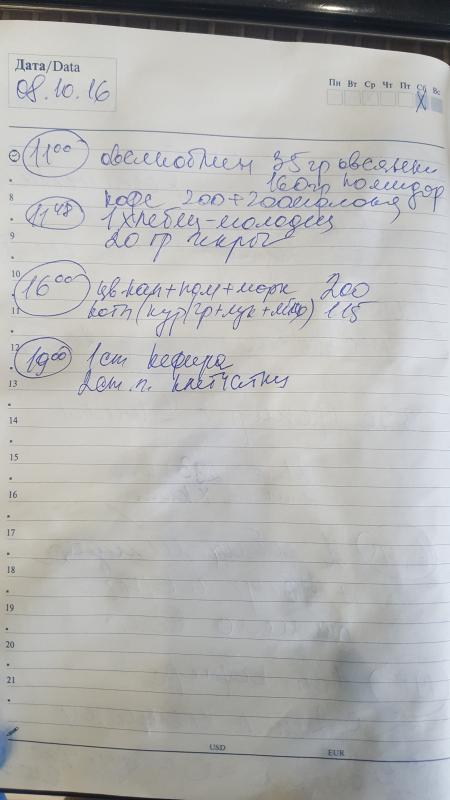 Дата/Data
08.10.16
Пн Вт Ср Чт Пт Сб Вс
11 00 овсяноблин 35 гр овсянки
160 гр помидор
8
кофе 200+200 молока
11 45 1 хлебец-молодец
9
20 гр икры
10
16 00 цв.кап+пом+морк 200
11
котл (кур гр+лук+яйцо) 115
12
19 00 1 ст кефира
13
2 ст. л. клетчатки
14
15
16
17
18
19
20
21
USD EUR